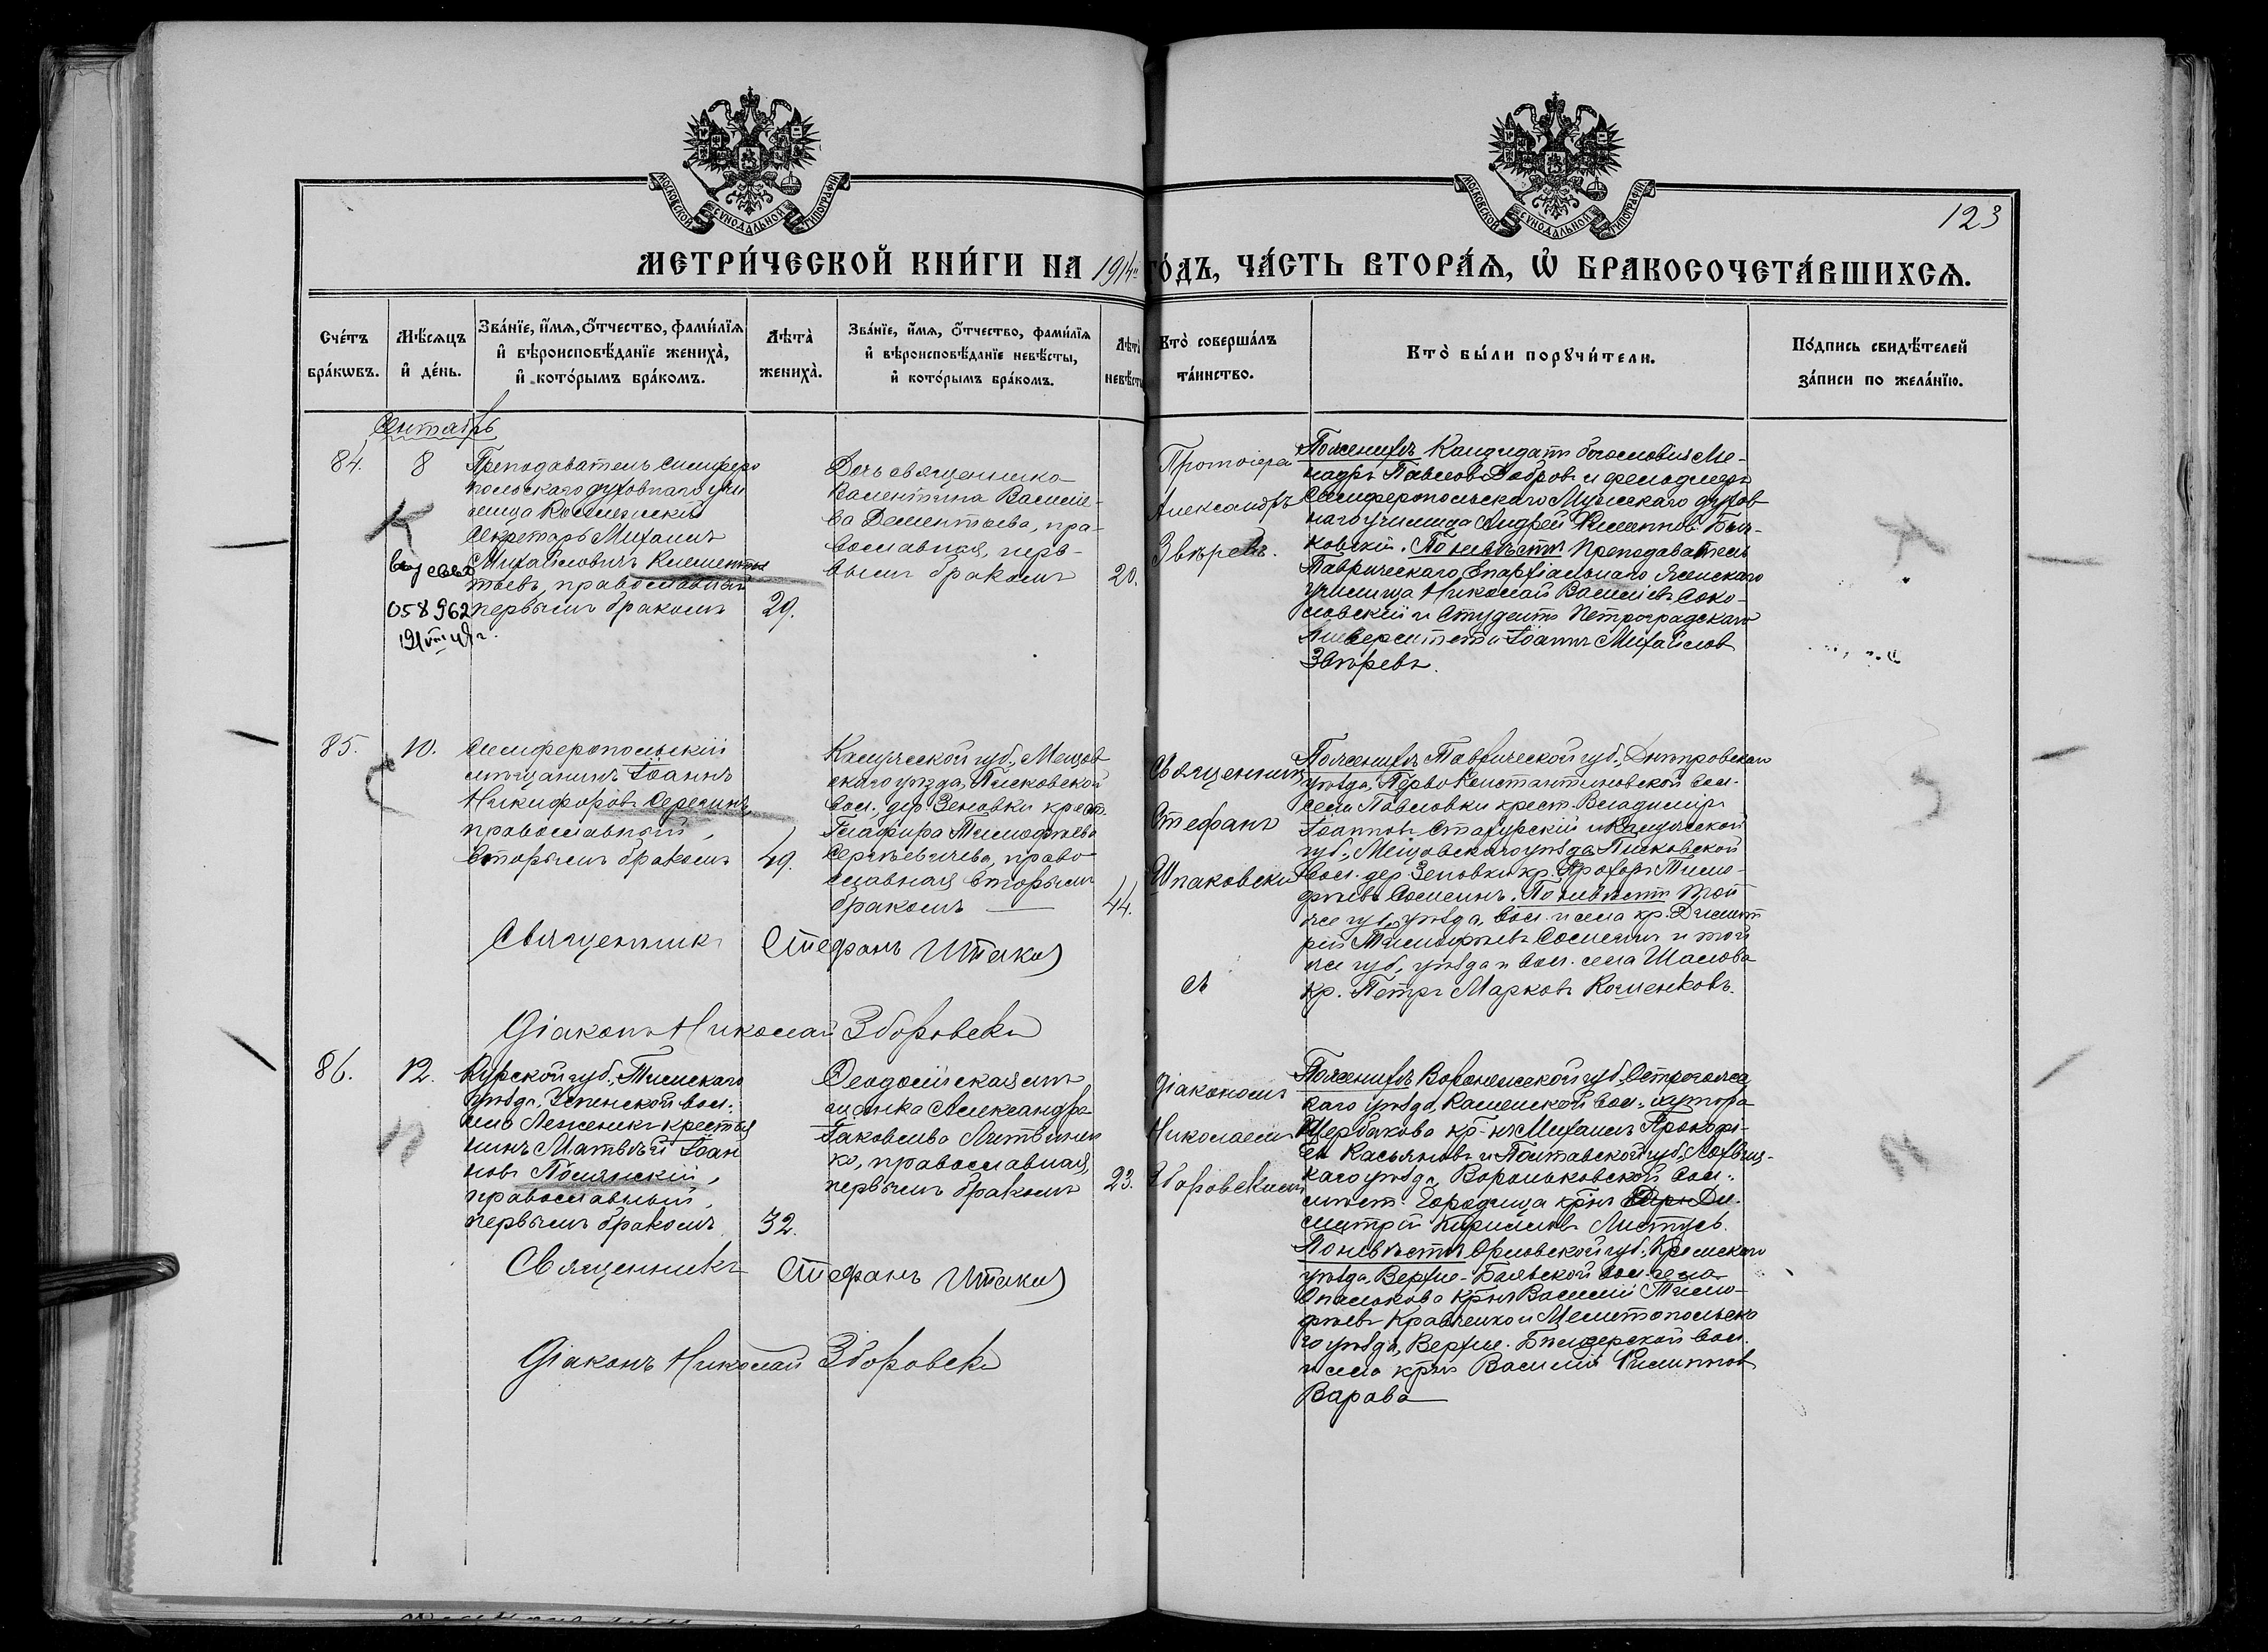 МОСКОВСКОЙ СѴНОДАЛЬНОЙ ТИПОГРАФІИ
МОСКОВСКОЙ СѴНОДАЛЬНОЙ ТИПОГРАФІИ
123
МЕТРИ́ЧЕСКОЙ КНИ́ГИ НА 1914 ГО́ДЪ, ЧА́СТЬ ВТОРА́Ѧ, Ѡ҆ БРАКОСОЧЕТА́ВШИХСѦ.
Сче́тъ
бра́кѡвъ.
Мѣ́сѧцъ
и҆ де́нь.
Зва́нїе, и҆́мѧ, ѻ҆́тчество, фами́лїѧ
и҆ вѣроисповѣ́данїе жениха̀,
и҆ кото́рымъ бра́комъ.
Лѣта̀
жениха̀.
Зва́нїе, и҆́мѧ, ѻ҆́тчество, фами́лїѧ
и҆ вѣроисповѣ́данїе невѣ́сты,
и҆ кото́рымъ бра́комъ.
Лѣта̀
невѣ́сты
Кто̀ соверша́лъ
та́инство.
Кто̀ бы́ли порꙋчи́тели.
По́дпись свидѣ́телей
за́писи по жела́нїю.
Сентябрь
84.
8
К
058962
Преподаватель Симферо
польскаго духовнаго учи
лища Коллежскій
Секретарь Михаилъ
Михайловичъ Клемен
тьевъ, православный
первымъ бракомъ
29.
Дочь священника
Валентина Василіе-
ва Дементьева, пра-
вославная, пер-
вымъ бракомъ
20.
Протоіерей
Александръ
Звѣревъ.
По женихѣ Кандидатъ богословія Ме-
надръ Павловъ Добровъ и фельдшеръ
Симферопольскаго Мужскаго духов
наго училища Андрей Филипповъ Бѣл-
ковскій. По невѣстѣ Преподаватель
Таврическаго Епархіальнаго Женскаго
училища Николай Василіевъ Соко-
ловскій и Студентъ Петроградскаго
Университета Іоаннъ Михайловъ
Звѣревъ.
85.
10.
С
Симферопольскій
мѣщанинъ Іоаннъ
Никифоровъ Серегинъ,
православный,
вторымъ бракомъ
49.
Калужской губ., Мещов
скаго уѣзда, Писковской
вол., дер. Зеновки крест.
Глафира Тимофѣева
Сергѣевичева, право-
славная, вторымъ
бракомъ —
44.
Священник
Стефанъ
Шпаковскій
По женихѣ Таврической губ., Днѣпровскаго
уѣзда, Перво-Константиновской вол.
села Павловки крест. Владиміръ
Іоанновъ Стахурскій и Калужской
губ., Мещовскаго уѣзда Писковской
вол. дер. Зеновки кр. Прохоръ Тимо-
фѣевъ Сомкинъ. По невѣстѣ той
же губ., уѣзда, вол. и села кр. Димит
рій Тимофѣевъ Сомкинъ и той
же губ., уѣзда и вол. села Шалова
кр. Петръ Марковъ Коженковъ.
С
Священникъ Стефанъ Шпаков
Діаконъ Николай Зборовскі
86.
12.
П
Курской губ., Тимскаго
уѣзда, Успенской вол.,
села Леженекъ крестья
нинъ Матвѣй Іоан
новъ Полянскій,
православный,
первымъ бракомъ
32.
Ѳеодосійская мѣ
щанка Александра
Іаковлева Литвинен
ко, православная,
первымъ бракомъ
23.
Діакономъ
Николаемъ
Зборовскимъ
По женихѣ Воронежской губ., Острогожс
каго уѣзда, Каменской вол., хутора
Щербакова кр-нъ Михаилъ Прокофі-
евъ Касьяновъ и Полтавской губ., Лохвиц-
каго уѣзда, Вороньковской вол.,
мѣст. Городища кр-нъ Ди-
митрій Кирилловъ Листусъ.
По невѣстѣ Орловской губ., Кромскаго
уѣзда, Верхне-Боевской вол. села
Опалькова кр-нъ Василій Тимо-
фѣевъ Кравченко и Мелитопольска
го уѣзда, Верхне-Бѣлозерской вол.
и села кр-нъ Василій Филипповъ
Варава
Священникъ Стефанъ Шпаков
Діаконъ Николай Зборовскі